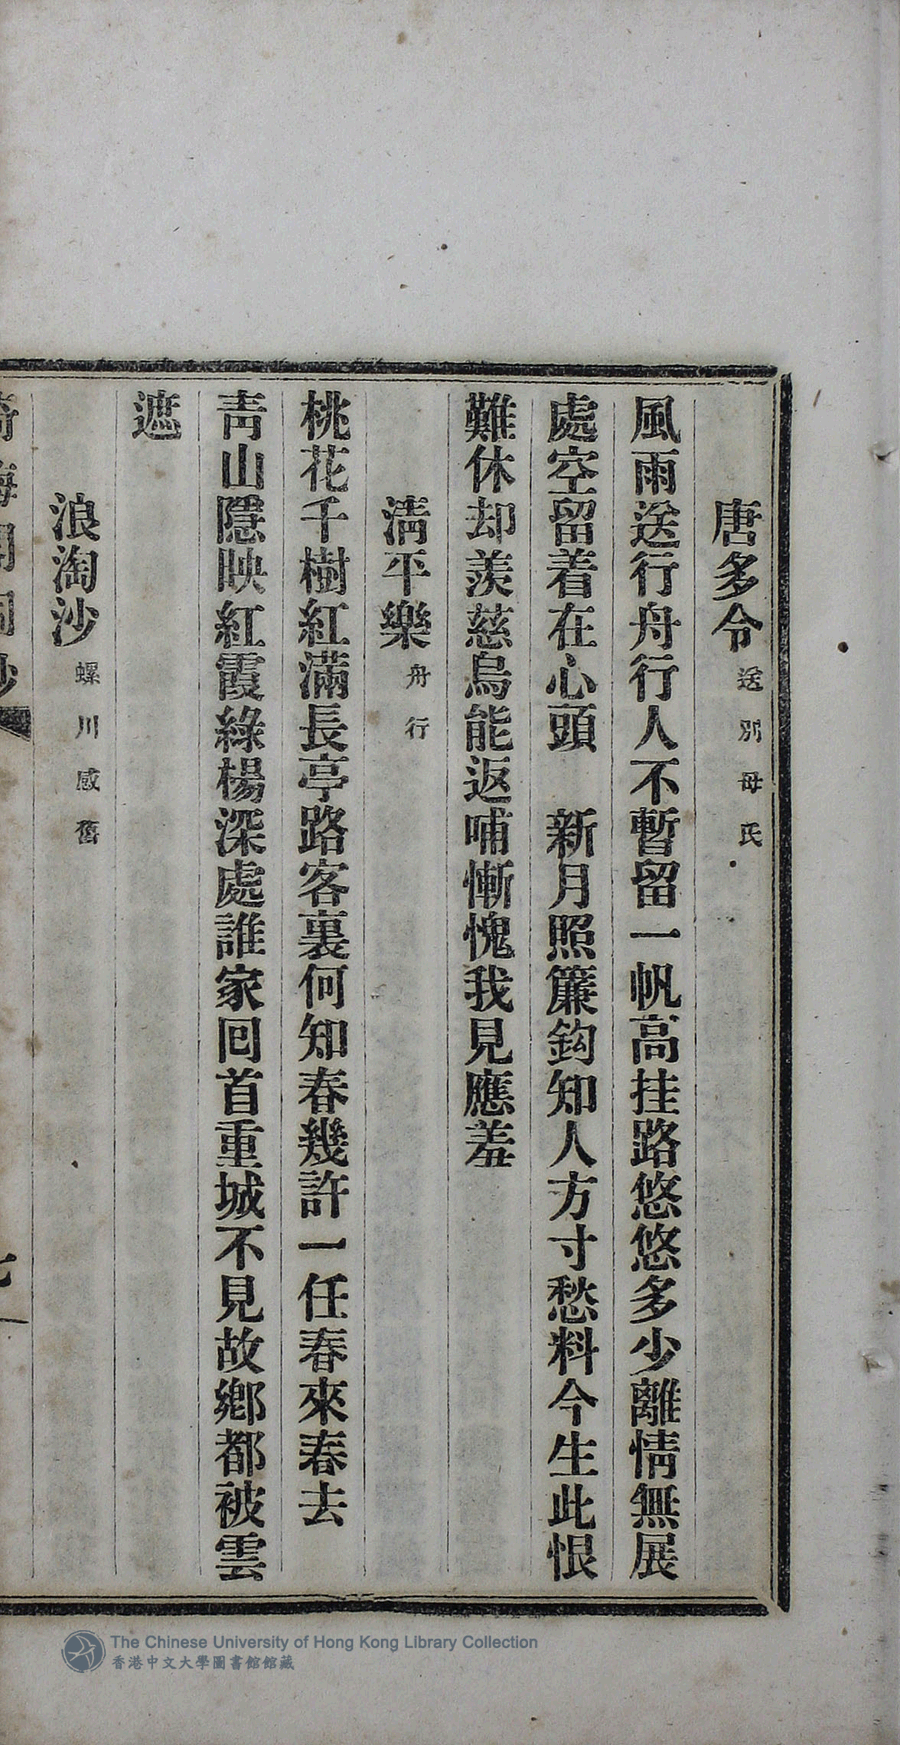 唐多令 送別母氏
風雨送行舟行人不暫留一帆高挂路悠悠多少離情無展
處空留着在心頭　新月照簾鈎知人方寸愁料今生此恨
難休却羨慈烏能返哺慚愧我見應羞
清平樂 舟行
桃花千樹紅滿長亭路客裏何知春幾許一任春來春去
靑山隱映紅霞綠楊深處誰家囘首重城不見故鄉都被雲
遮
浪淘沙 螺川感舊
The Chinese University of Hong Kong Library Collection
香港中文大學圖書館館藏